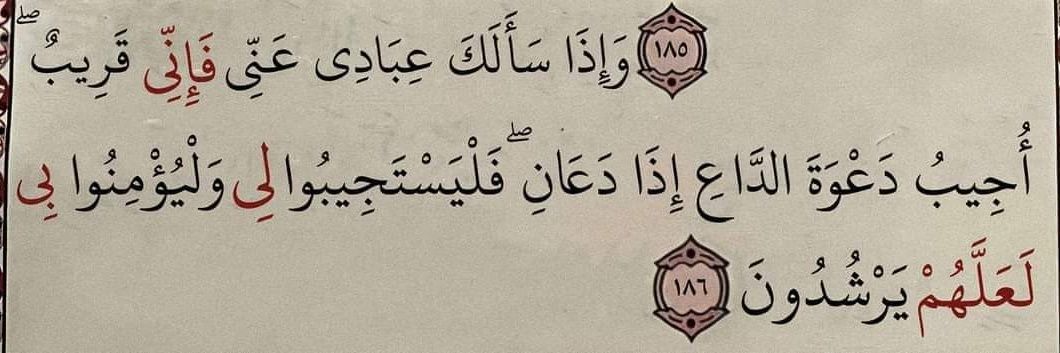 ١٨٥ وَإِذَا سَأَلَكَ عِبَادِى عَنِّى فَإِنِّى قَرِيبٌ ۖ
أُجِيبُ دَعْوَةَ الدَّاعِ إِذَا دَعَانِ ۖ فَلْيَسْتَجِيبُوا لِى وَلْيُؤْمِنُوا بِى
لَعَلَّهُمْ يَرْشُدُونَ ١٨٦